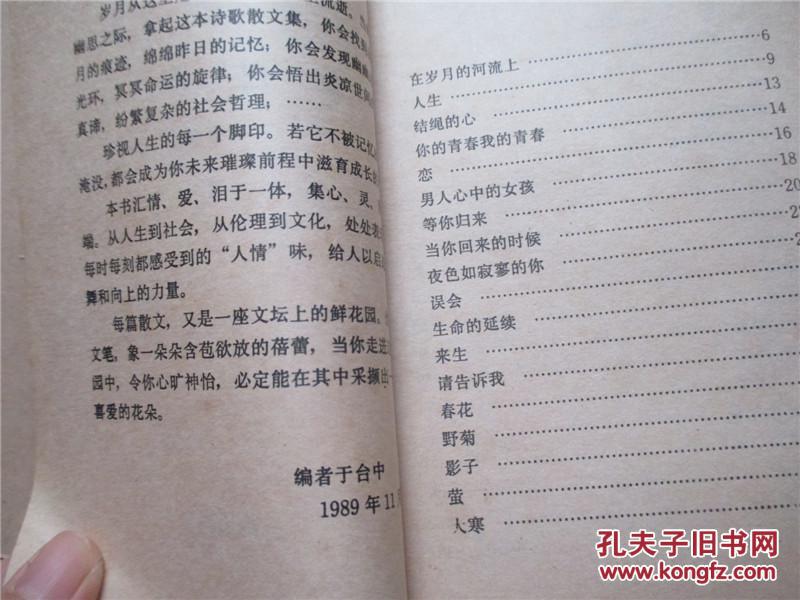 岁月从这里
流逝。
幽思之际，拿起这本诗歌散文集，你会找到
月的痕迹，绵绵昨日的记忆；你会发现幽幽
光环，冥冥命运的旋律；你会悟出炎凉世间
真谛，纷繁复杂的社会哲理；……
珍视人生的每一个脚印。若它不被记忆
淹没，都会成为你未来璀璨前程中滋育成长的
本书汇情、爱、泪于一体，集心、灵、
端。从人生到社会，从伦理到文化，处处表
每时每刻都感受到的“人情”味，给人以启
舞和向上的力量。
每篇散文，又是一座文坛上的鲜花园。
文笔，象一朵朵含苞欲放的蓓蕾，当你走进
园中，令你心旷神怡，必定能在其中采撷出一
喜爱的花朵。
编者于台中
1989年11
在岁月的河流上……6
人生……9
结绳的心……13
你的青春我的青春……14
恋……16
男人心中的女孩……18
等你归来……20
当你回来的时候……2
夜色如寂寥的你……2
误会……
生命的延续……
来生……
请告诉我……
春花……
野菊……
影子……
萤……
大寒……
孔夫子旧书网
www.kongfz.com